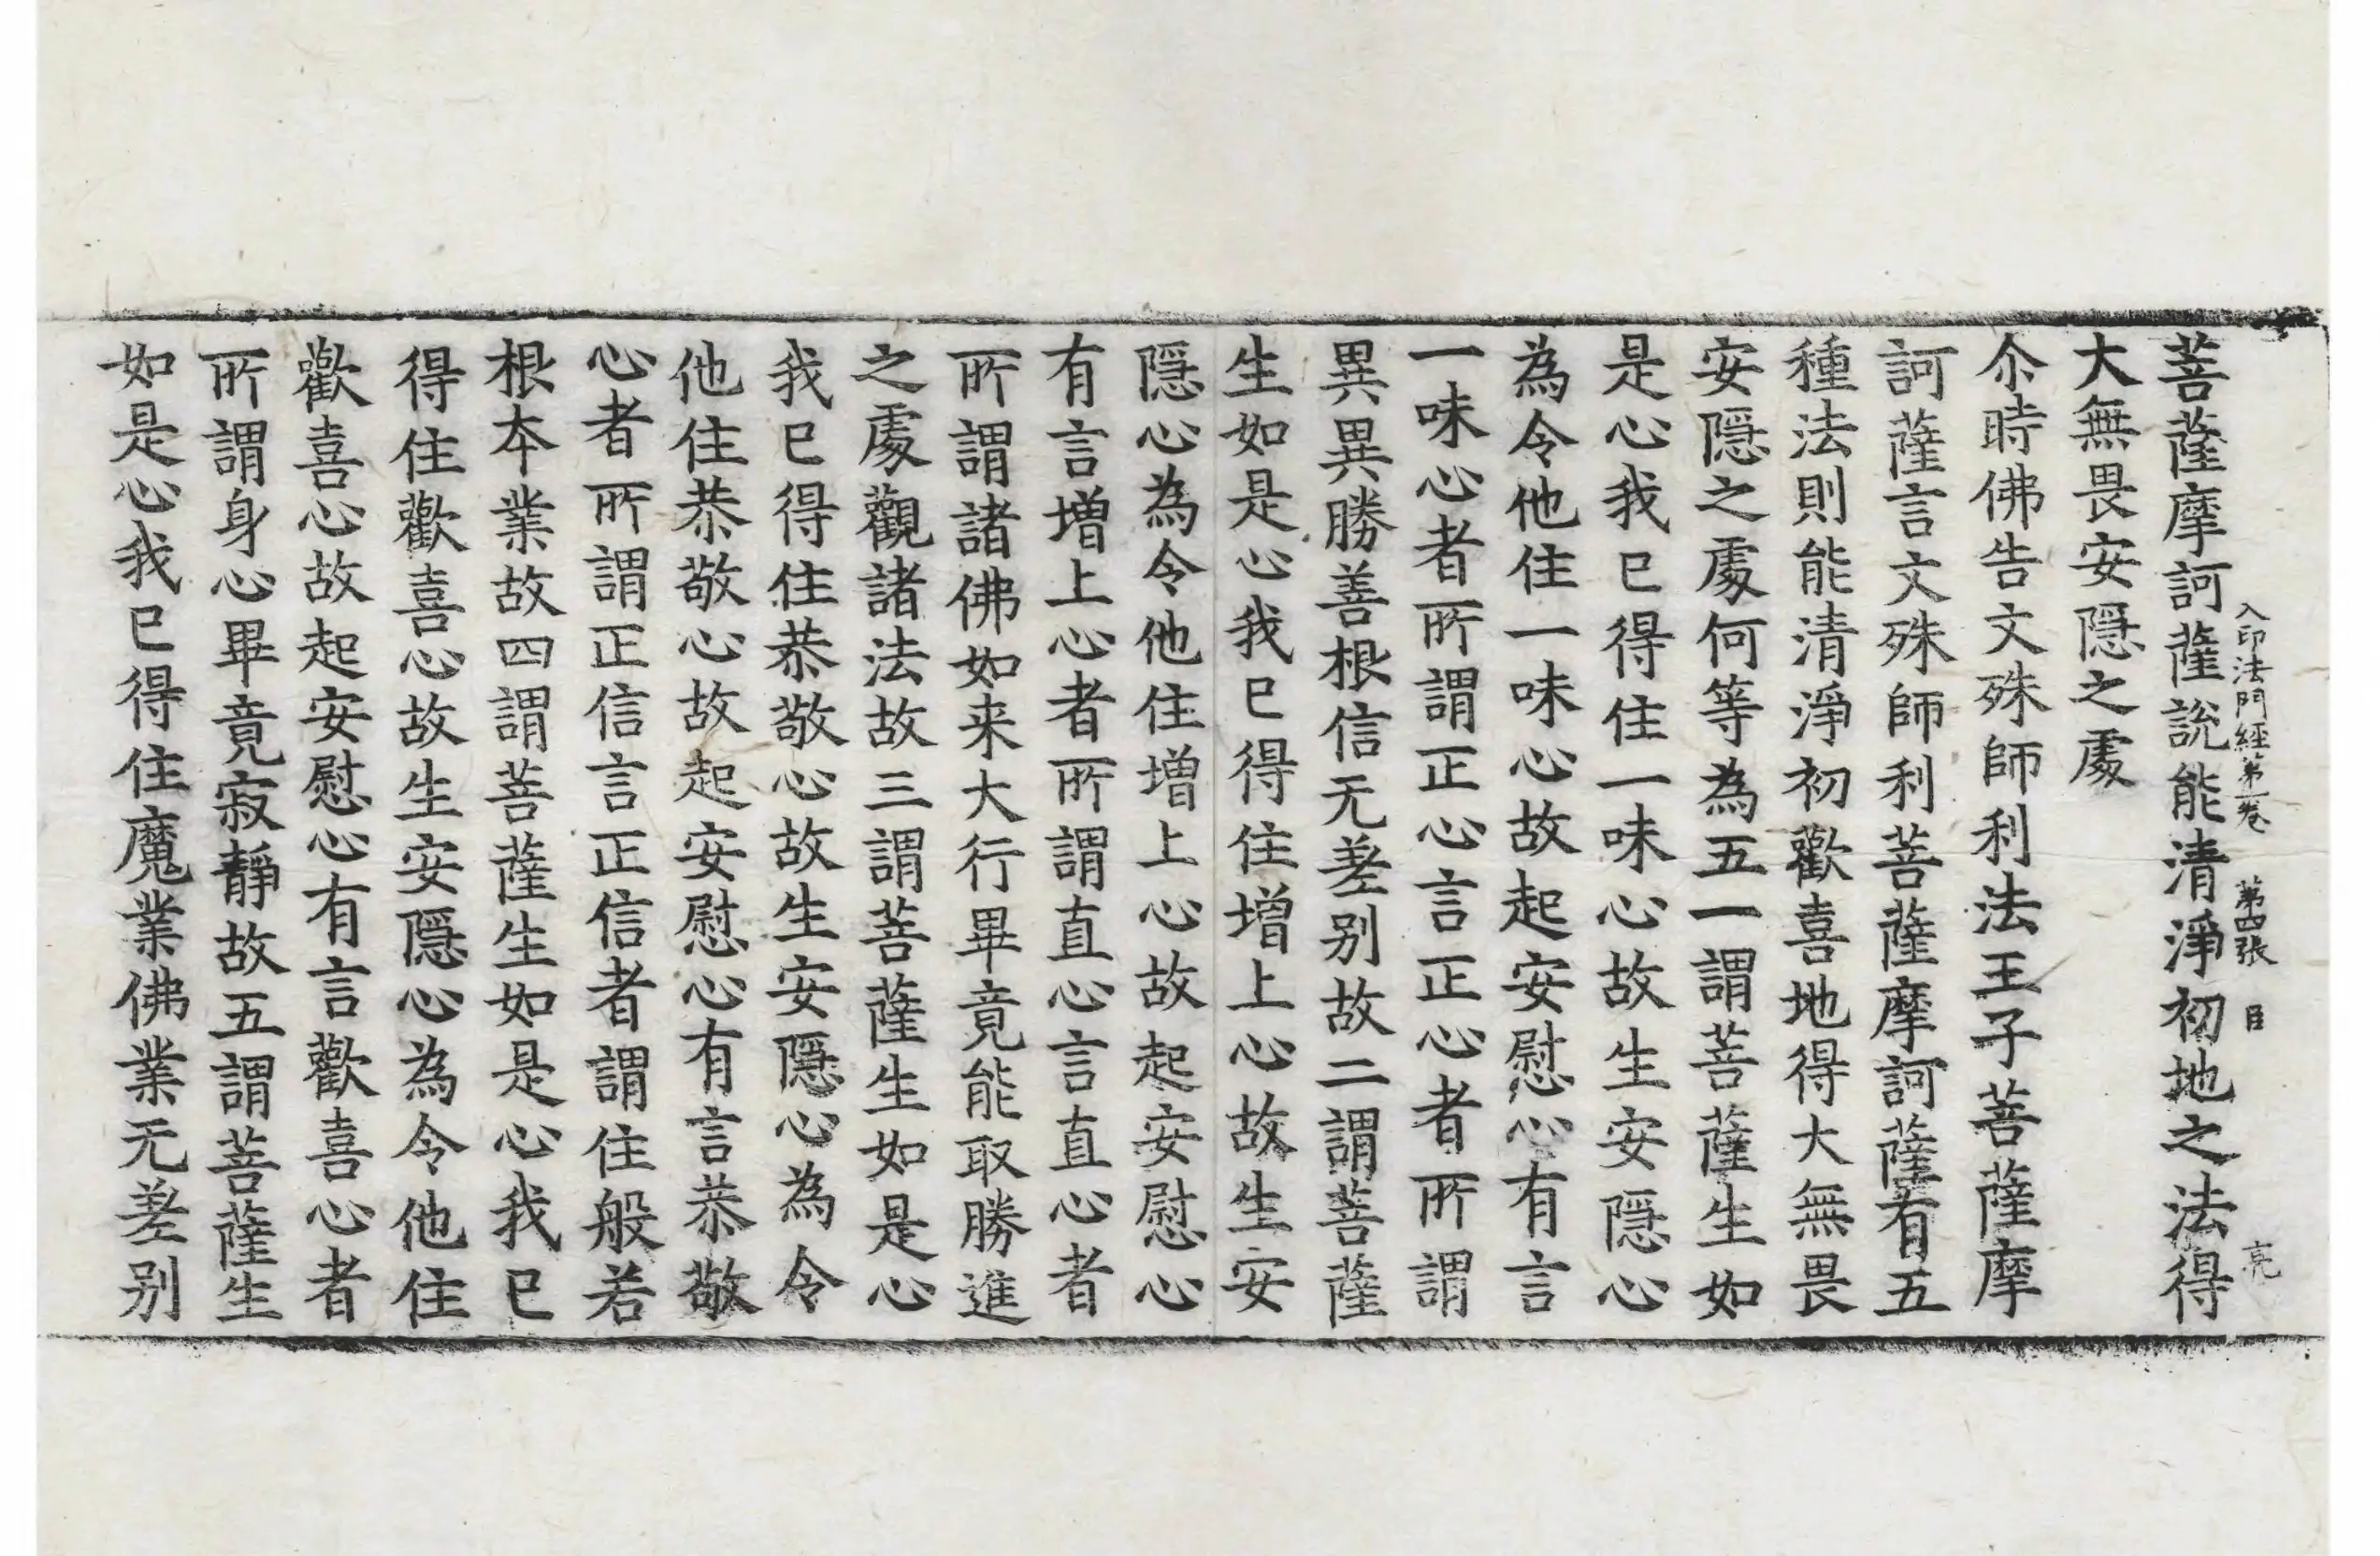 菩薩摩訶薩說能清淨初地之法得
入印法門經第一卷 第四張 臣
亮
大無畏安隱之處
尒時佛告文殊師利法王子菩薩摩
訶薩言文殊師利菩薩摩訶薩有五
種法則能清淨初歡喜地得大無畏
安隱之處何等為五一謂菩薩生如
是心我已得住一味心故生安隱心
為令他住一味心故起安慰心有言
一味心者所謂正心言正心者所謂
異異勝善根信无差别故二謂菩薩
生如是心我已得住增上心故生安
隱心為令他住增上心故起安慰心
有言增上心者所謂直心言直心者
所謂諸佛如来大行畢竟能取勝進
之處觀諸法故三謂菩薩生如是心
我已得住恭敬心故生安隱心為令
他住恭敬心故起安慰心有言恭敬
心者所謂正信言正信者謂住般若
根本業故四謂菩薩生如是心我已
得住歡喜心故生安隱心為令他住
歡喜心故起安慰心有言歡喜心者
所謂身心畢竟寂靜故五謂菩薩生
如是心我已得住魔業佛業无差别